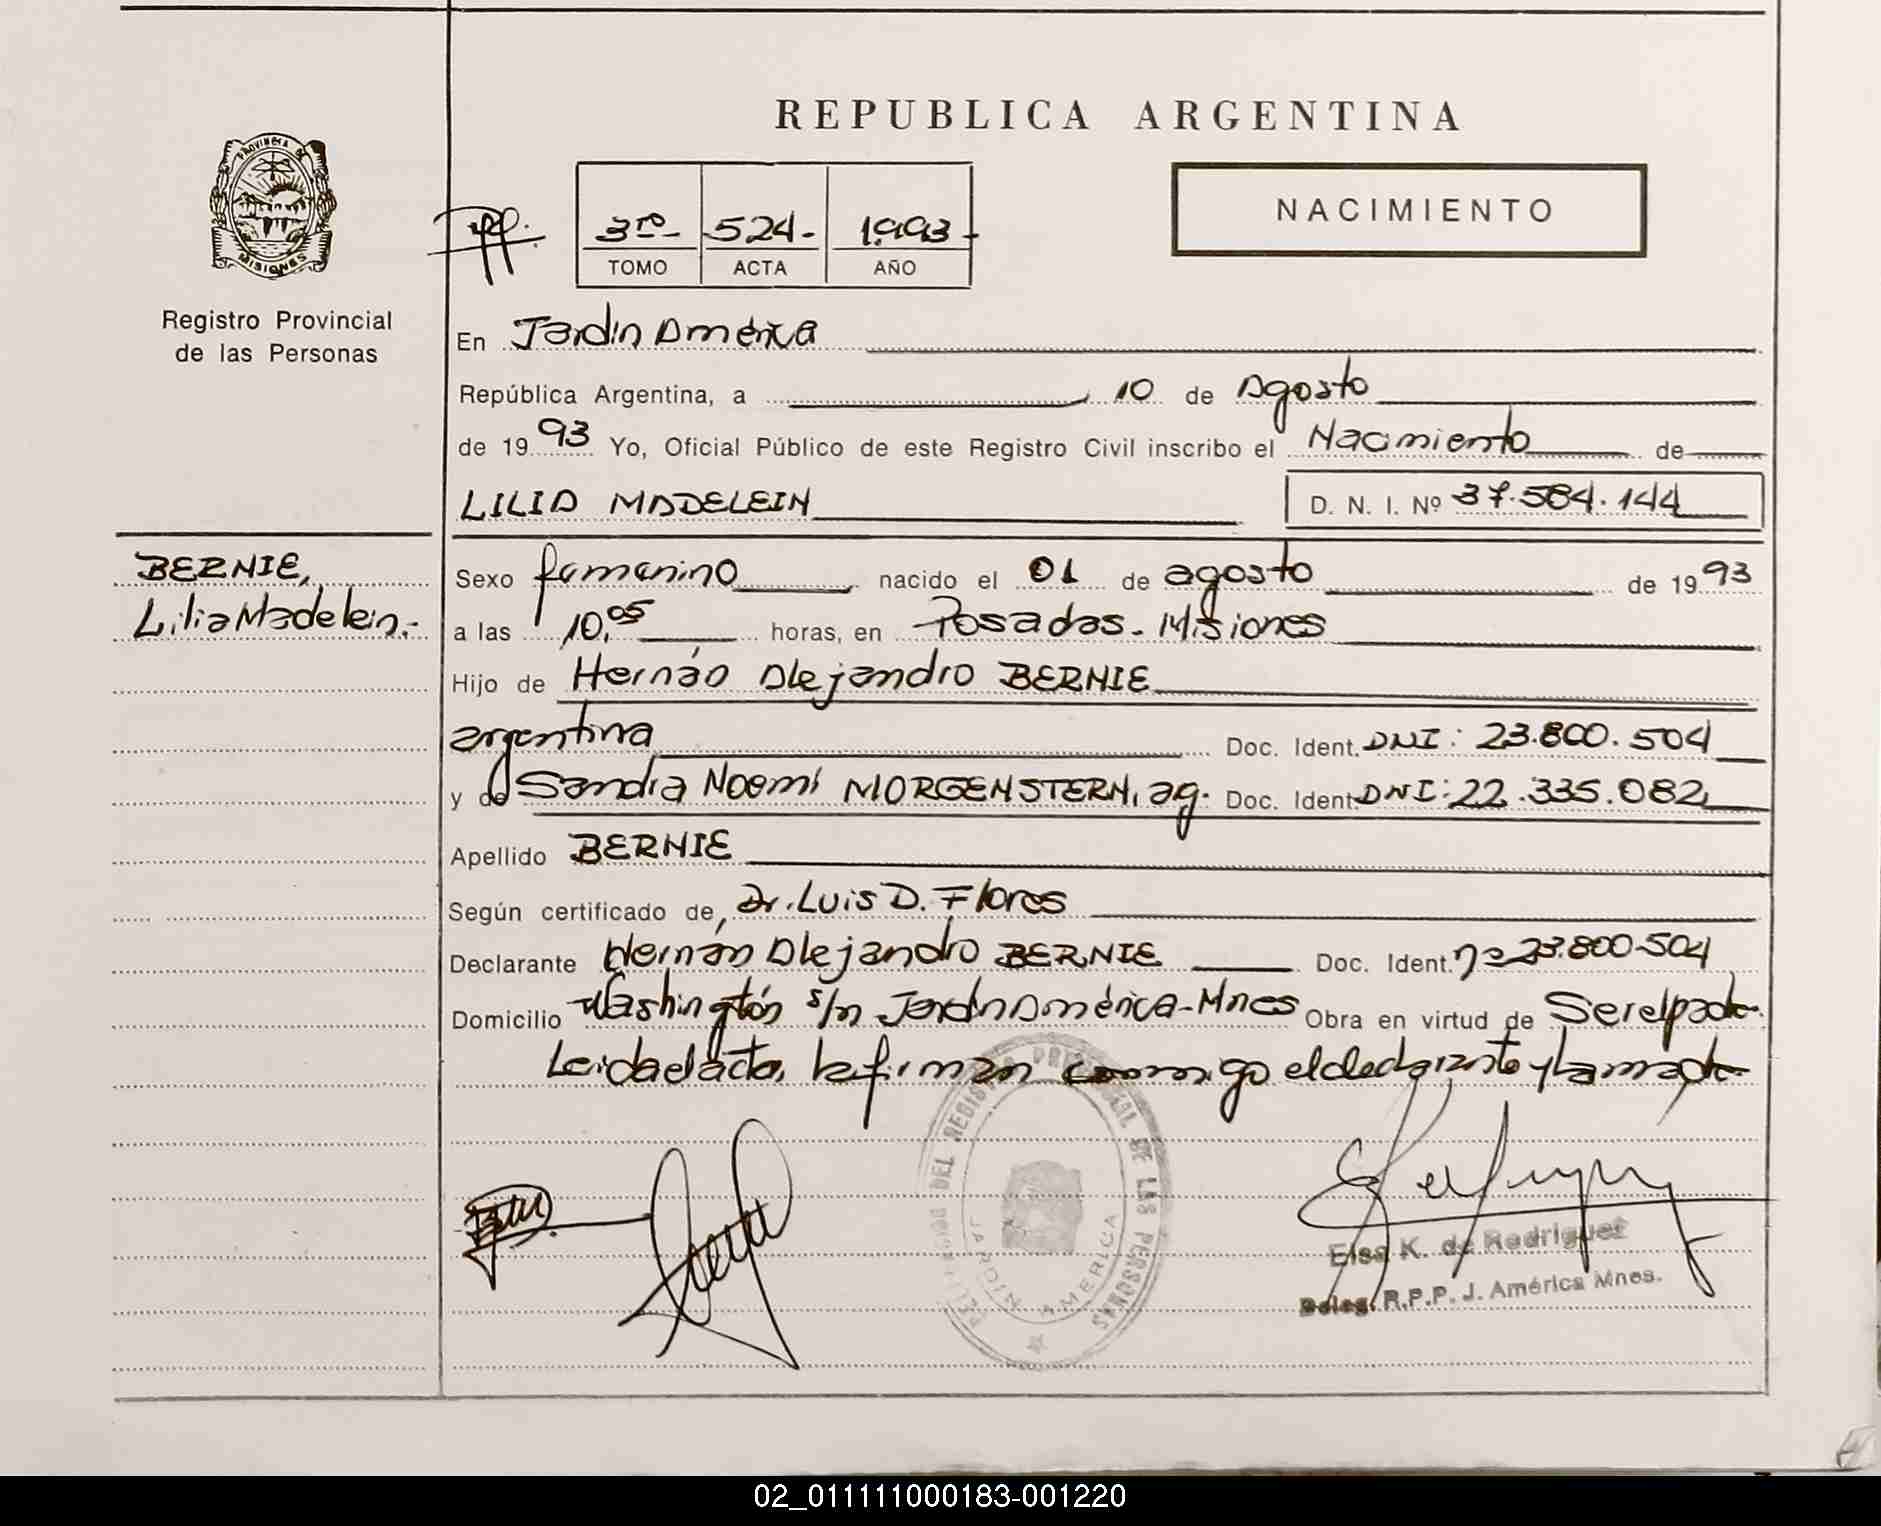 REPUBLICA ARGENTINA
PROVINCIA DE MISIONES
Registro Provincial
de las Personas
3ro 524.- 1.993.-
TOMO ACTA AÑO
NACIMIENTO
En Jardin América
República Argentina, a 10 de Agosto
de 1993 Yo, Oficial Público de este Registro Civil inscribo el Nacimiento de
LILIA MADELEIN D. N. I. Nº 37.584.144
BERNIE,
Lilia Madelein.-
Sexo femenino nacido el 01 de agosto de 1993
a las 10,05 horas, en Posadas - Misiones
Hijo de Hernán Alejandro BERNIE
argentina Doc. Ident. DNI: 23.800.504
y de Sandra Noemí MORGENSTERN, ag. Doc. Ident. DNI: 22.335.082
Apellido BERNIE
Según certificado de, Dr. Luis D. Flores
Declarante Hernán Alejandro BERNIE Doc. Ident. nº 23.800.504
Domicilio Washingtón s/n Jardín América-Mnes Obra en virtud de Ser el padre
Leida el acta, la firman conmigo el declarante y la madre
DEL REGISTRO PROVINCIAL DE LAS PERSONAS
JARDIN AMERICA
Elsa K. de Rodriguez
Deleg. R.P.P. J. América Mnes.
02_011111000183-001220